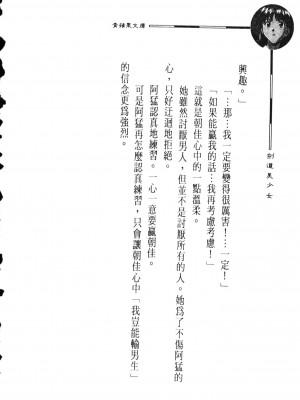 青蘋果文庫
劍道美少女
興趣。」
「…那…我一定要變得很厲害!…一定!」
「如果能贏我的話…我再考慮考慮!」
這就是朝佳心中的一點溫柔。
她雖然討厭男人,但並不是討厭所有的人。她為了不傷阿猛的
心,只好迂迴地拒絕。
阿猛認真地練習。一心一意要贏朝佳。
可是阿猛再怎麼認真練習,只會讓朝佳心中「我豈能輸男生」
的信念更為強烈。